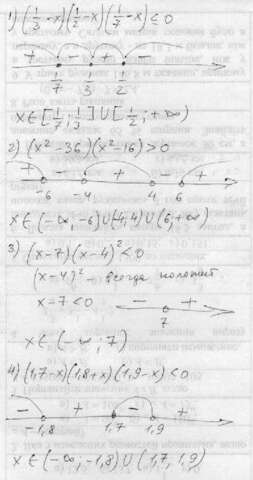 1) (1/3 - x)(1/2 - x)(1/7 - x) ≤ 0
+ - + -
1/7 1/3 1/2
x ∈ [1/7; 1/3] ∪ [1/2; +∞)
2) (x² - 36)(x² - 16) > 0
+ - + - +
-6 -4 4 6
x ∈ (-∞, -6) ∪ (4,4) ∪ (6, +∞)
3) (x-7)(x-4)² < 0
(x-4)² - всегда полож
x - 7 < 0 - +
7
x ∈ (-∞; 7)
4) (1,7 - x)(1,8 + x)(1,9 - x) < 0
- + - +
-1,8 1,7 1,9
x ∈ (-∞, -1,8) ∪ (1,7, 1,9)